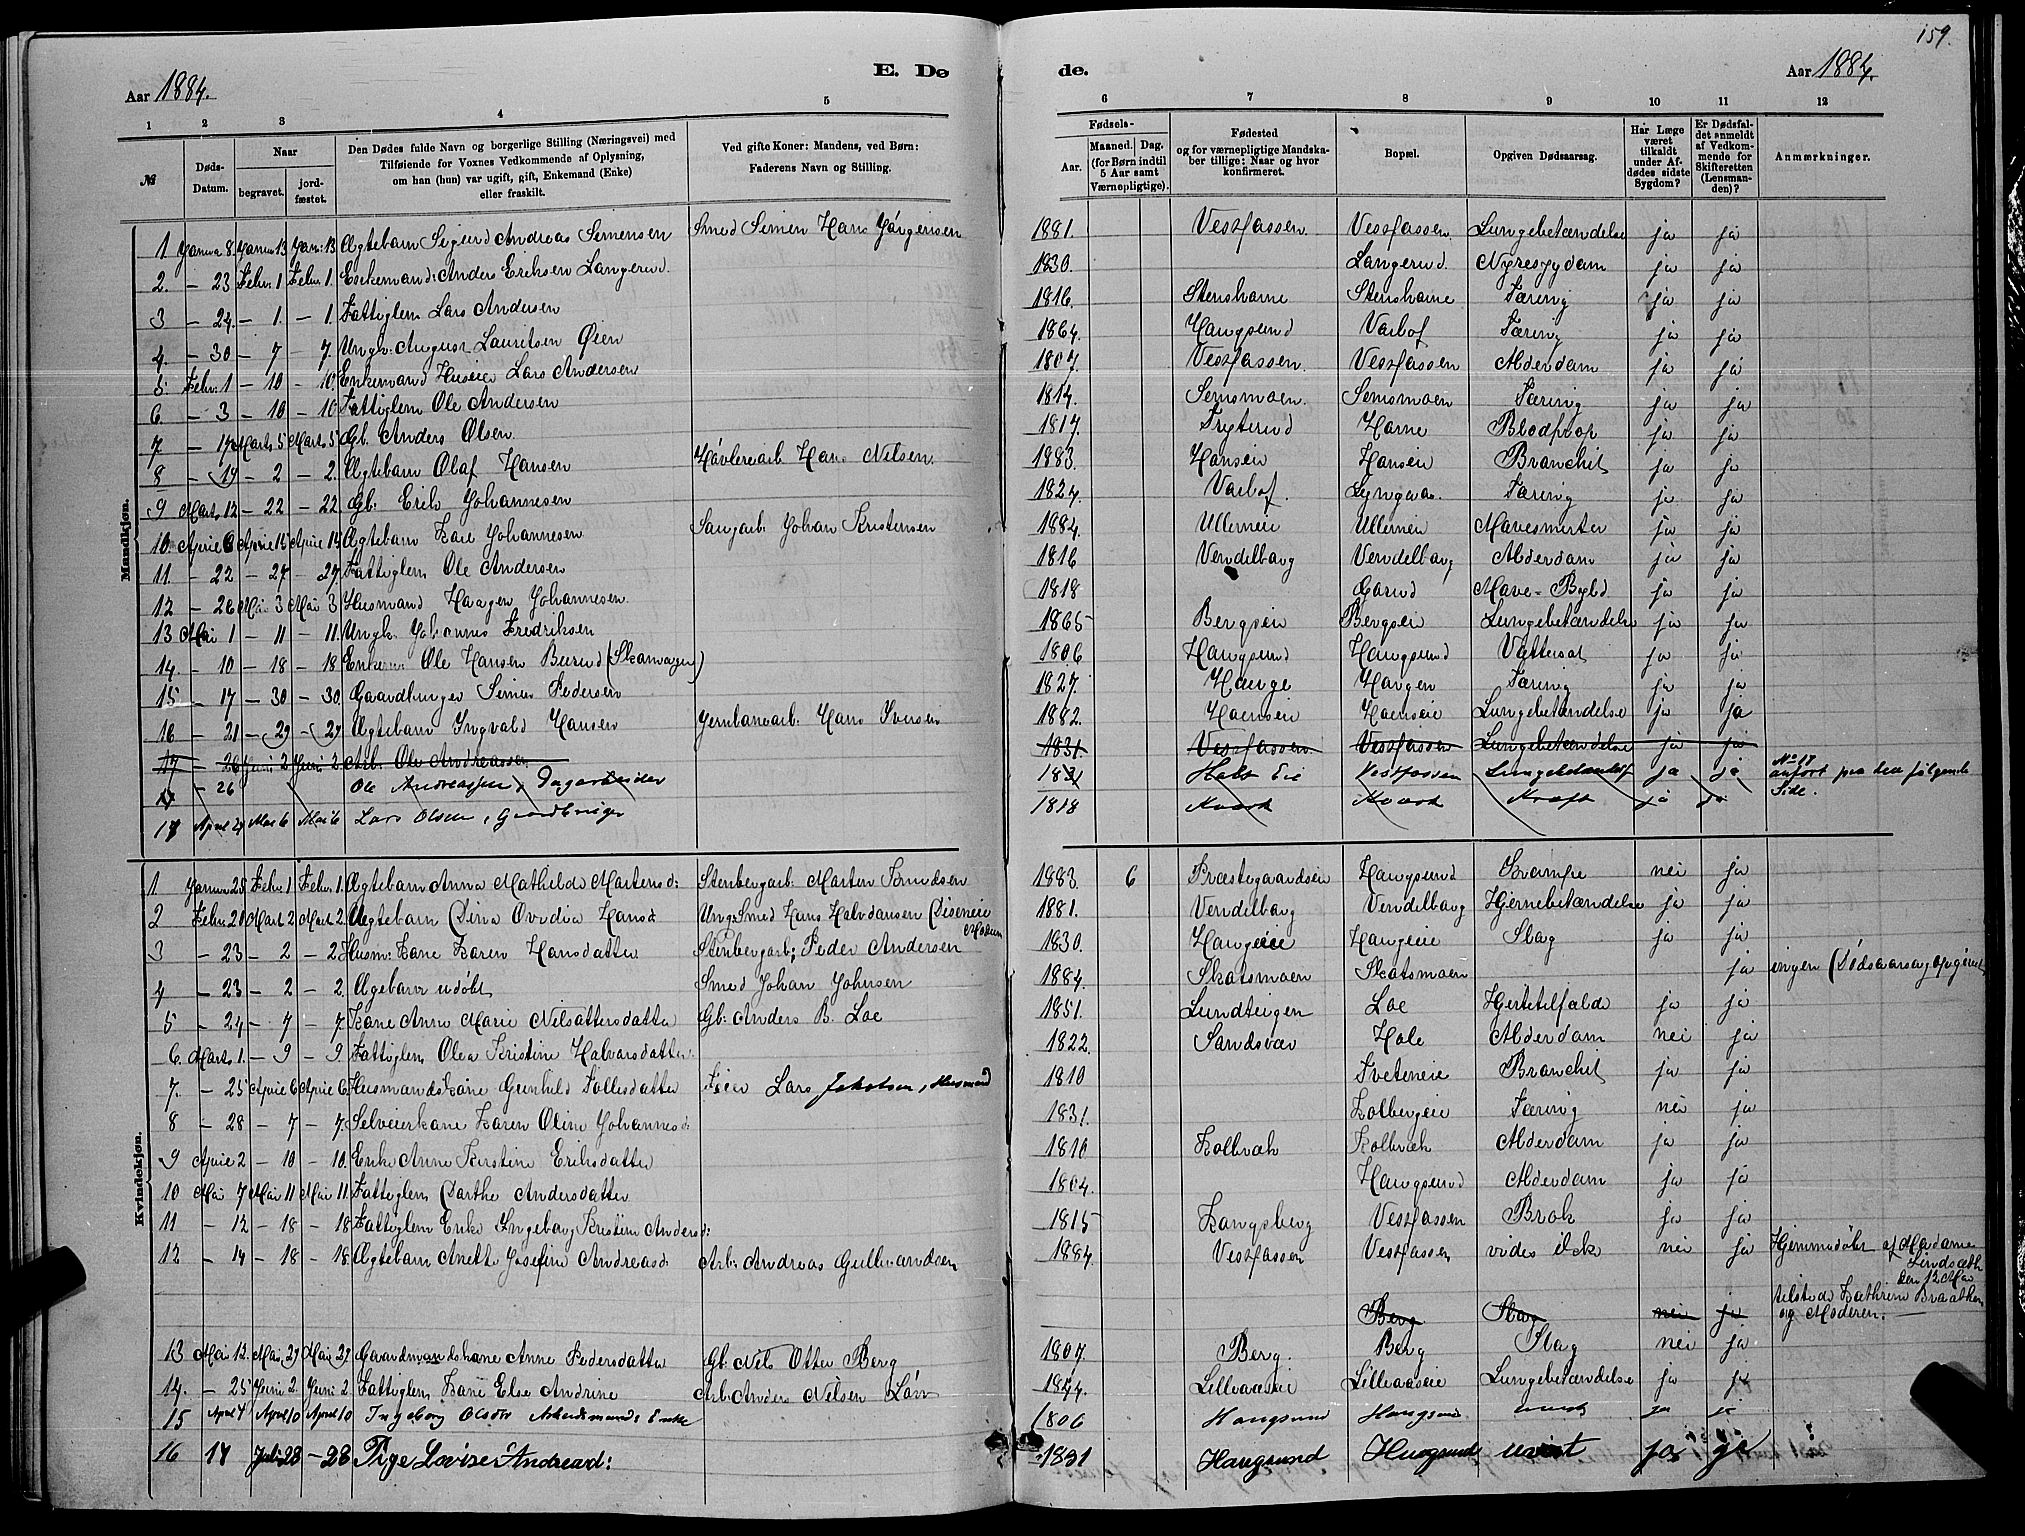 159.
E. Dø de.
Aar 1884.
Aar 1884.
1 2 3 4 5 6 7 8 9 10 11 12
№
Døds-Datum.
Naar
begravet.
jord-fæstet.
Den Dødes fulde Navn og borgerlige Stilling (Næringsvei) med
Tilføiende for Voxnes Vedkommende af Oplysning,
om han (hun) var ugift, gift, Enkemand (Enke)
eller fraskilt.
Ved gifte Koner: Mandens, ved Børn:
Faderens Navn og Stilling.
Fødsels-
Aar.
Maaned. Dag.
(for Børn indtil
5 Aar samt
Værnepligtige).
Fødested
og for værnepligtige Mandska-
ber tillige: Naar og hvor
konfirmeret.
Bopæl.
Opgiven Dødsaarsag.
Har Læge
været
tilkaldt
under Af-
dødes sidste
Sygdom?
Er Dødsfal-
det anmeldt
af Vedkom-
mende for
Skifteretten
(Lensman-
den)?
Anmærkninger.
Mandkjøn.
1 Janua 8. Janua 13 Jan: 13 Ægtebarn Sigurd Andreas Simensen Smed Simen Hans Jørgensen 1881. Vestfassen. Vestfassen. Lungebetændelse ja ja
2. – 23 Febr. 1 Febr. 1. Enkemand: Anders Eriksen Langerud. 1830. Langerud. Nyresygdom ja ja
3 – 24. – 1. – 1. Fattiglem Lars Andersen 1816. Stenshorne Stenshorne Tæring ja ja
4. – 30 – 7 – 7. Ungk. August Lauritsen Øien 1864. Haugsund Varlof Tæring ja ja
5. Febr. 1 – 10 – 10. Enkemand Huseier Lars Andersen 1807. Vestfassen. Vestfassen Alderdom ja ja
6 – 3 – 10 – 10. Fattiglem Ole Andersen 1814. Semsmoen. Semsmoen Tæring ja ja
7 – 17 Marts 5 Marts 5 Gb. Anders Olsen 1817. Frygterud Horne Blodprop ja ja
8 – 19 – 2 – 2. Ægtebarn Olaf Hansen Høvlerearb. Hans Nilsen. 1883. Hanseie Hanseie Bronchit ja ja
9 Marts 12 – 22 – 22. Gb. Erik Johannesen 1824. Varlof. Lyngaas. Tæring ja ja
10. April 6 April 15 April 15 Ægtebarn Karl Johannesen Saugarb. Johan Kristensen 1884. Ullerneie Ullerneie Mavesmerter ja ja
11. – 22 – 27 – 27. Fattiglem Ole Andersen 1816 Vendelborg Vendelborg Alderdom ja ja
12 – 26 Mai 3 Mai 3 Husmand Haagen Johannesen. 1818 Garud Mave-Byld ja ja
13 Mai 1 – 11 – 11. Ungk. Johannes Fredriksen 1865 Bergseie Bergseie Lungebetændelse ja ja
14. – 10 – 18 – 18 Enkem. Ole Hansen Buerud (Skanvagen) 1806 Haugsund Haugsund Vattersot ja ja
15 – 17 – 30 – 30. Gaardbruger Simen Pedersen 1827. Hauge Haugen Tæring ja ja
16 – 21 – 29 – 29 Ægtebarn Ingvald Hansen Jernbanearb. Hans Iversen 1882. Hornseie Hornseie Lungebetændelse ja ja
17 – 26 Juni 2 Juni 2. Arb. Ole Andreassen 1831. Vestfassen Vestfassen Lungebetændelse ja ja
17 – 26 Ole Andreassen, Dagarbeider 1831 Holt Eie Vestfassen Lungebetændelse ja ja No 18 anført paa den følgende Side.
18 April 27 Mai 6 Mai 6 Lars Olsen, Gaardbruger 1818 Kvart Kvart Kræft ja ja
Kvindekjøn.
1 Januar 25 Febr. 1 Febr. 1. Ægtebarn Anna Mathilde Martensd: Stenbergarb. Marten Knudsen 1883. 6 Præstegaardseie Haugsund Krampe nei ja
2 Febr. 20 Mart. 2 Mart. 2. Ægtebarn Dina Ovidia Hansd. Ung. Smed Hans Halvdansen Diseneie Modum 1881. Vendelborg Vendelborg Hjernebetændelse ja ja
3 – 23 – 2 – 2. Husm: Kone Karen Hansdatter Stenbergarb; Peder Andersen 1830. Haugeeie Haugeeie Slag ja ja
4 – 23 – 2 – 2. Ægebarn udøbt Smed Johan Johnsen 1884. Skatsmoen Skatsmoen ja ingen (Dødsaarsag opgivet
5 – 24 – 7 – 7. Kone Anne Marie Nilsattersdatter Gb: Anders B. Loe 1851. Lundteigen Loe Hjertetilfælde ja ja
6. Marts 1. – 9 – 9. Fattiglem Olea Kristine Halvorsdatter 1822. Sandsvær Hole Alderdom nei ja
7. – 25 April 6 April 6. Husmandskone Gunhild Tollesdatter Eier Lars Jakobsen, Husmand 1810 Tveteneie Bronchit ja ja
8 – 28 – 7 – 7. Selveierkone Karen Oline Johannesd: 1831. Kolbergeie Tæring nei ja
9 April 2 – 10 – 10. Enke Anne Kirstine Eriksdatter 1810 Kolbræk Kolbræk Alderdom ja ja
10 Mai 7 Mai 11 Mai 11. Fattiglem Dorthe Andersdatter 1804. Haugsund Alderdom ja ja
11 – 12 – 18 – 18 Fattiglem Enke Ingeborg Kristine Andersd: 1815 Kongsberg Vestfassen Brok ja ja
12 – 14 – 18 – 18. Ægtebarn Anette Josefine Andreasd: Arb: Andreas Gulbrandsen 1884. Vestfassen Vestfassen vides ikke nei ja Hjemmedøbt af Madame Lindsæth den 12 Mai tilstede Kathrine Braathen og Moderen.
Berg Slag nei ja
13 Mai 12. Mai 29 Mai 29 Gaardmandskone Anne Pedersdatter Gb. Nels Otter Berg 1807. Berg. Berg Slag nei ja
14. – 25 Juni 2. Juni 2. Fattiglem Kone Else Andrine Arb: Anders Nilsen Løvn 1844. Lilleaaseie Lilleaaseie Lungebetændelse ja ja
15 April 4 April 10 April 10 Ingeborg Olsdtr Arbeidsmands Enke 1806 Haugsund Haugsund uvist ja ja
16 17 Juli 28 – 28 Pige Lovise Andreasd: 1831 Haugsund Haugsund uvist ja ja